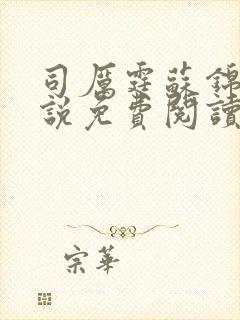 司厲霆蘇錦
說免費閱讀
宗華